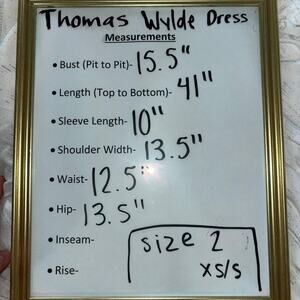 Thomas Wylde Dress
Measurements
• Bust (Pit to Pit)- 15.5"
• Length (Top to Bottom)- 41"
• Sleeve Length- 10"
• Shoulder Width- 13.5"
• Waist- 12.5"
• Hip- 13.5"
• Inseam-
• Rise-
size 2
xs/s